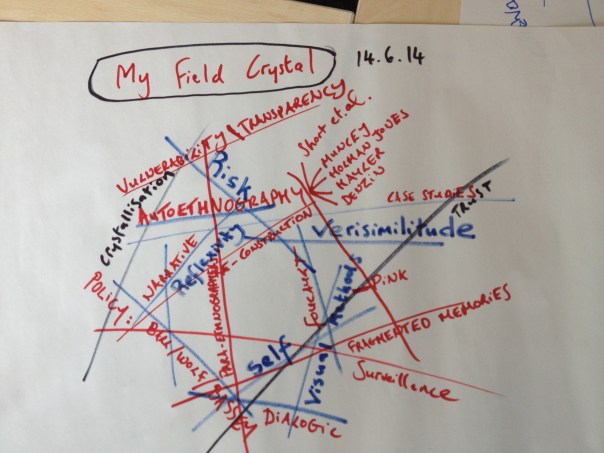 My Field Crystal
14.6.14
VULNERABILITY \ TRANSPARENCY
Short et.al.
MUNCEY
HOLMAN JONES
KAYLER
DENZIN
Risk
Crystallisation
AUTOETHNOGRAPHY
CASE STUDIES
TRUST
Verisimilitude
Reflexivity
NARRATIVE
POLICY:
FOUCAULT
Visual Methods
PINK
FRAGMENTED MEMORIES
Self
Surveillance
DIALOGIC